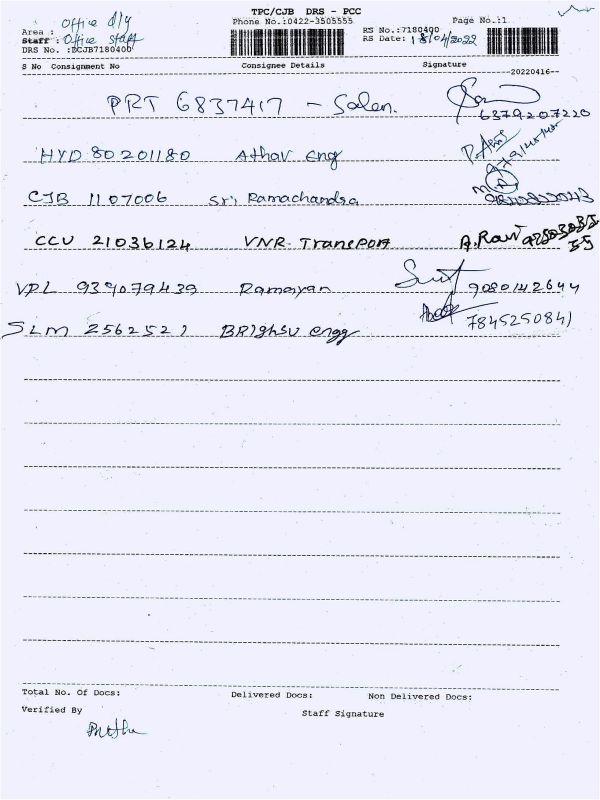 TPC/CJB DRS - PCC
Phone No.:0422-3505555
Page No.:1
Area : Office dly
Staff : Office staff
DRS No. :DCJB7180400
RS No.:7180400
RS Date: 18/04/2022
S No Consignment No Consignee Details Signature
--20220416--
PRT 6837417 - Salem.
6379207220
HYD 80201180 Athav eng
CJB 1107006 Sri Ramachandra
CCU 21036124 VNR Transport A. Ravi
VPL 939079439 Ramayan 9080142644
SLM 2562521 engg 7845250841
Total No. Of Docs: Delivered Docs: Non Delivered Docs:
Verified By Staff Signature